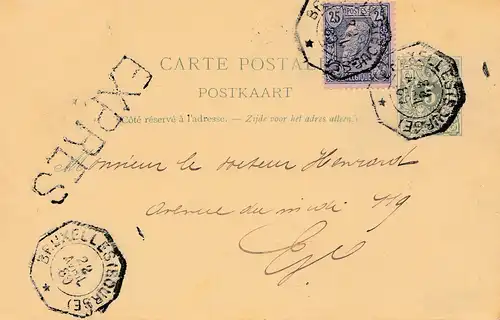 25 25
BRUXELLES (BOURSE)
CARTE POSTALE
POSTKAART
Côté réservé à l'adresse. — Zijde voor het adres alleen.
EXPRES
BRUXELLES (BOURSE)
Monsieur le docteur Henrard
Avenue du midi 119
E/V
BRUXELLES (BOURSE)